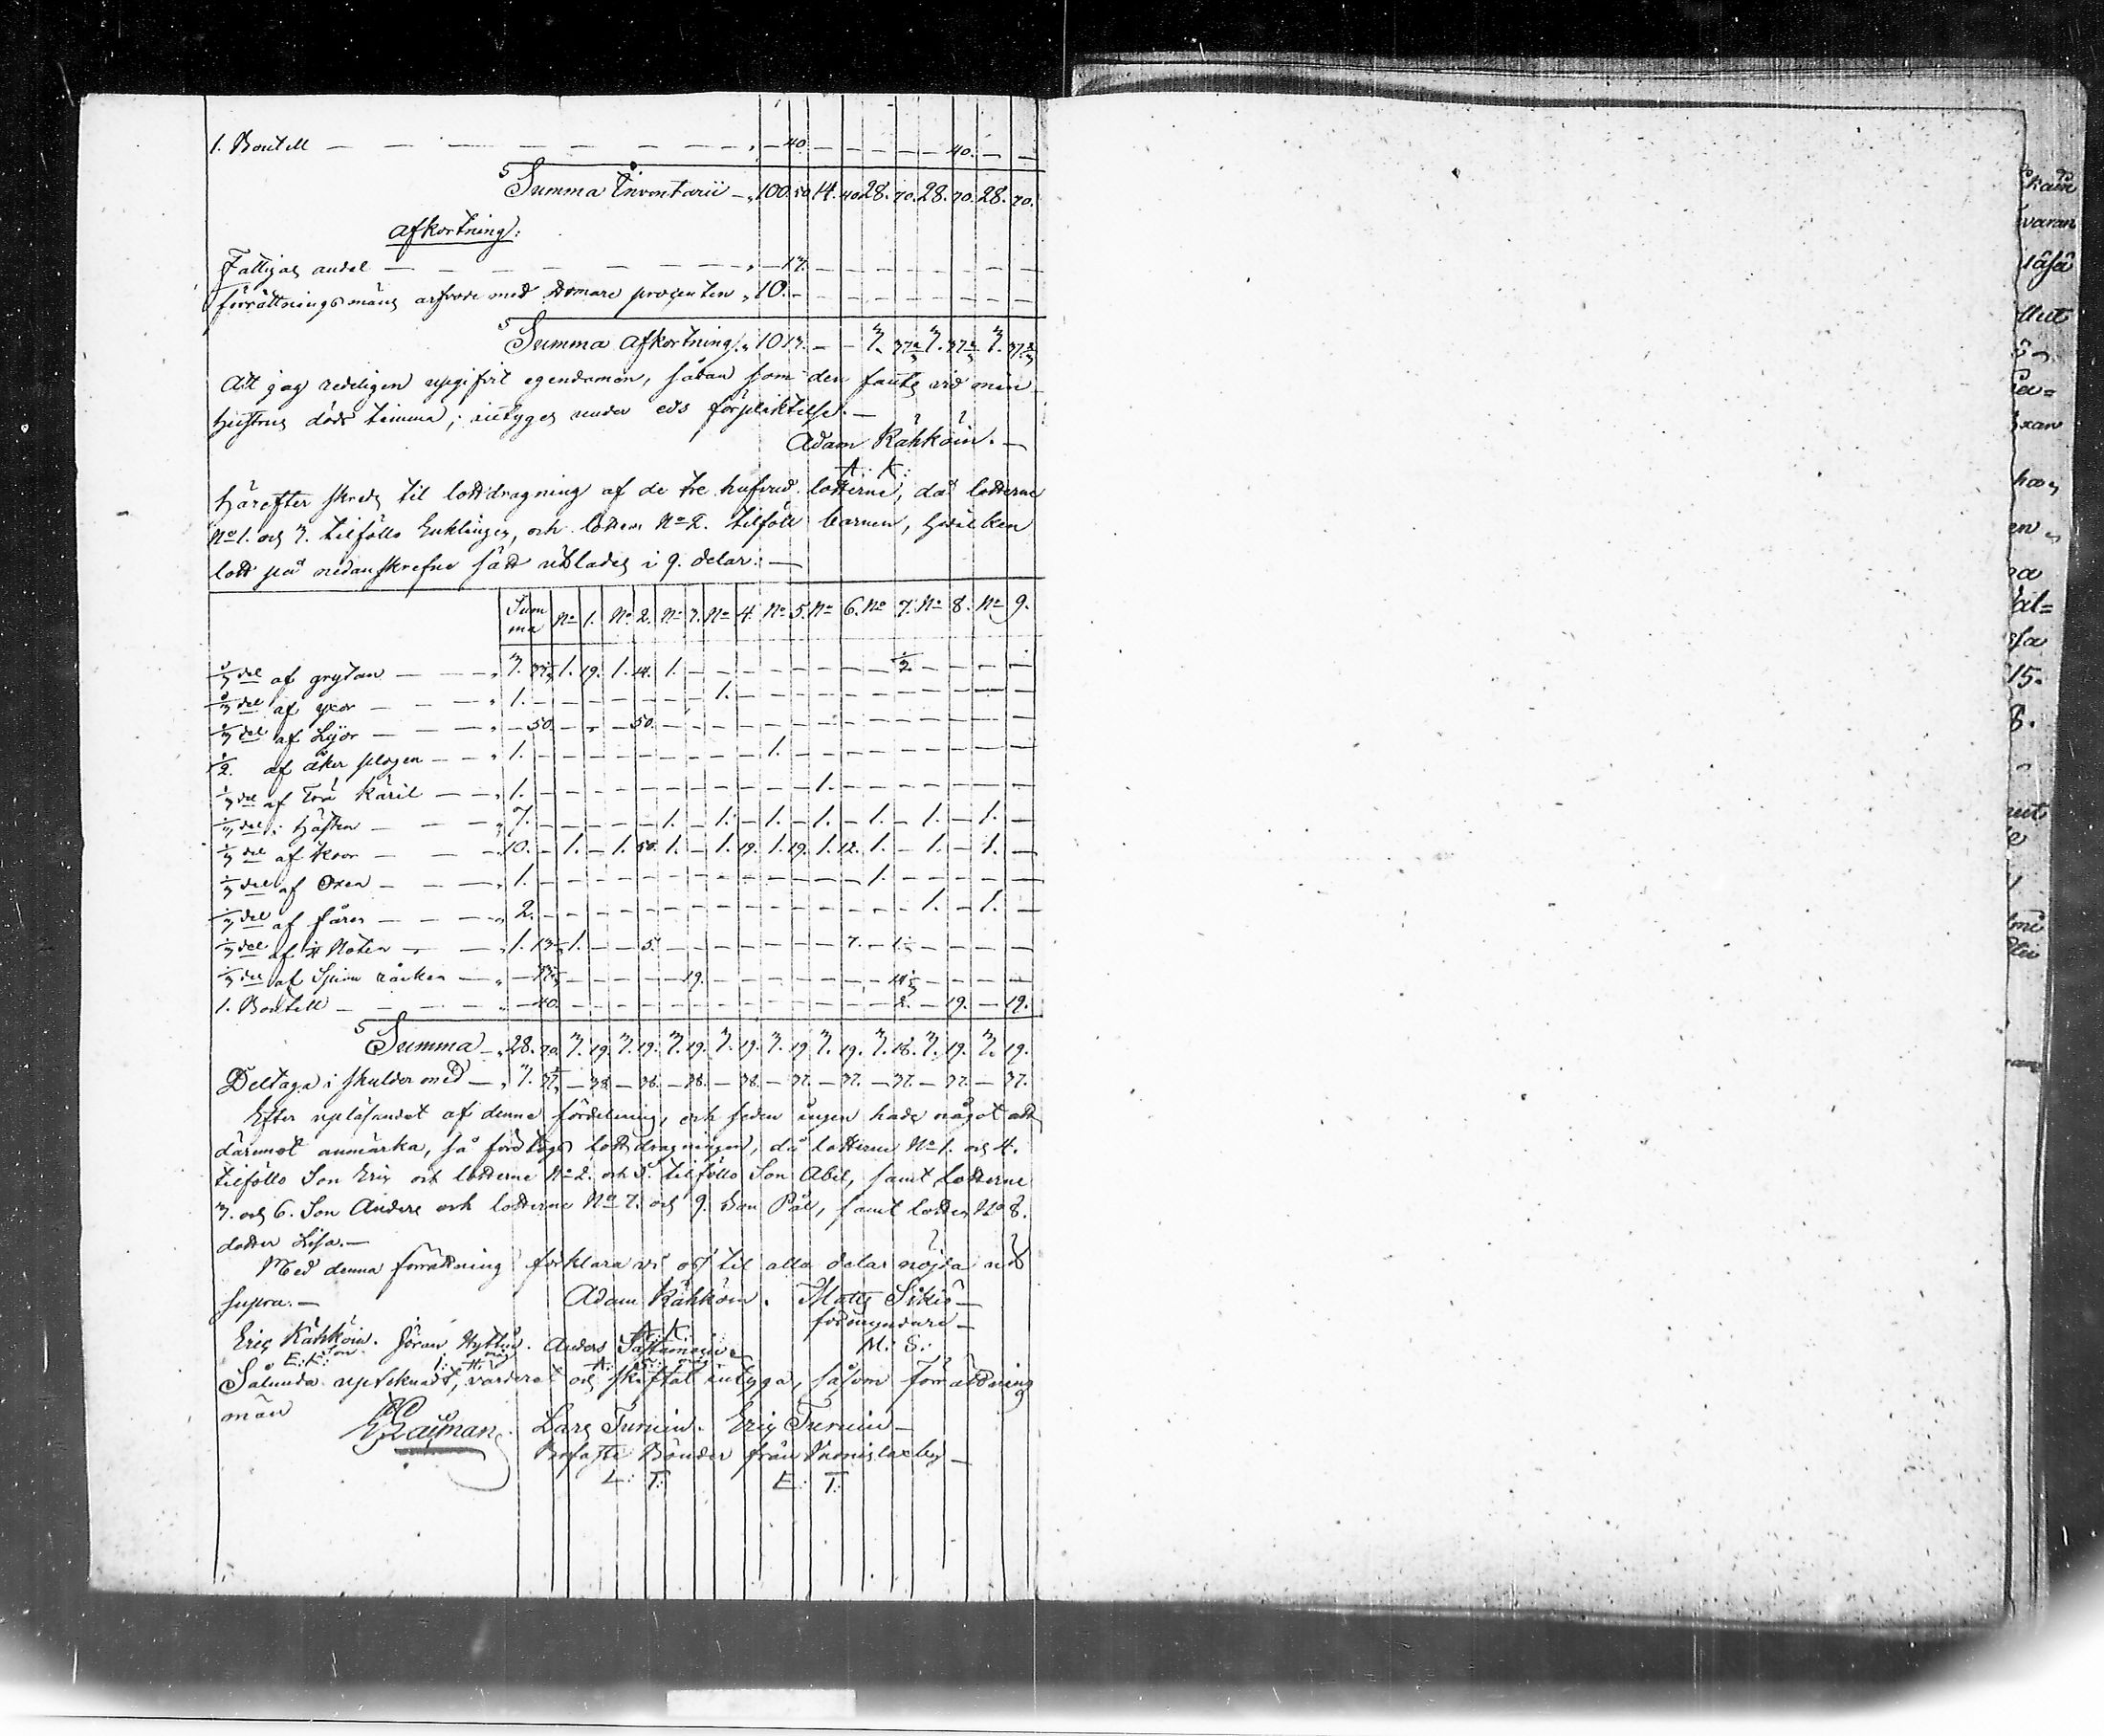 1. Boutell — — — — — — — „ — 40. — — — — — 40. — —
Summa Inventarii — „ 100. 50 14. 40 28. 70. 28. 70. 28. 70.
Afkortning:
Fattigas andel — — — — — — „ — 13. — — — — — — —
förrättningsmäns arfvode med Domare procenten „ 10. — — — — — — — —
Summa Afkortning „ 10 13. — — 3. 37 2/3 3. 37 2/3 3. 37 2/3
Att jag redeligen upgifvit egendomen, sådan som den fants vid min
hustrus döds timma; intygas under eds förpliktelse. —
Adam Kähköin. —
A: K:
Härefter skreds til lottdragning af de tre hufvud lotterne, då lotterne
No 1. och 3. tilföllo Enklingen, och lotten No 2. tilföll barnen, hvilken
lott på nedanskrefne sätt utlades i 9. delar: —
Summa No 1. No 2. No 3. No 4. No 5. No 6. No 7. No 8. No 9.
1/3 del af grytan — — „ 3. 33 1/3 1. 19. 1. 14. 1. — — — — — — — 1/3 — — — —
1/3 del af yxor — — — „ 1. — — — — — — 1. — — — — — — — — — —
1/3 del af Lijor — — — „ — 50. — — — 50. — — — — — — — — — — — —
1/2. af åker plogen — — „ 1. — — — — — — — — 1. — — — — — — — —
1/3 del af Trä Käril — — „ 1. — — — — — — — — — — 1. — — — — — —
1/3 del i Hästen — — — „ 7. — — — — — 1. — 1. — 1. — 1. — 1. — 1. — 1. —
1/3 del af Koor — — — „ 10. — 1. — 1. 50. 1. — 1. 19. 1. 19. 1. 12. 1. — 1. — 1. —
1/3 del af Oxen — — — „ 1. — — — — — — — — — — — — 1. — — — —
1/3 del af fåren — — — „ 2. — — — — — — — — — — — — — — 1. — 1. —
1/3 del af Noten — — „ 1. 13 1/3 1. — — 5. — — — — — — — 7. — 1 1/3 — — — —
1/3 del af Spinn råcken — „ — 33 1/3 — — — — — 19. — — — — — — — 14 1/3 — — — —
1. Boutell — — — — „ — 40. — — — — — — — — — — — — — 2. — 19. — 19.
Summa — „ 28. 70. 3. 19. 3. 19. 3. 19. 3. 19. 3. 19. 3. 19. 3. 18. 3. 19. 3. 19.
Deltaga i skulder med — „ 3. 37 2/3 — 38. — 38. — 38. — 38. — 37. — 37. — 37. — 37. — 37.
Efter upläsandet af denne fördelning, och sedan ingen hade något att
däremot anmärka, så företogs lottdragningen, då lotterne No 1. och 4.
tilföllo Son Eric och lotterne No 2. och 5. tilföllo Son Abel, samt Lotterne
3. och 6. Son Anders och lotterne No 7. och 9. Son Pål, samt lotten No 8.
dotter Lisa. —
Med denna förrättning förklara vi oss til alla delar nöjda ut
supra. — Adam Kähköin. Matts Sikiö —
A: K: förmyndare —
Eric Kähköin. Jöran Hyttin. Anders M: S:
E: K: son I: H:
Sålunda uptecknadt, värderat och skiftat intyga, såsom Förrättnings
män
Lars Turuin. Eric Turuin —
Bofaste Bönder från by —
L: T: E: T: